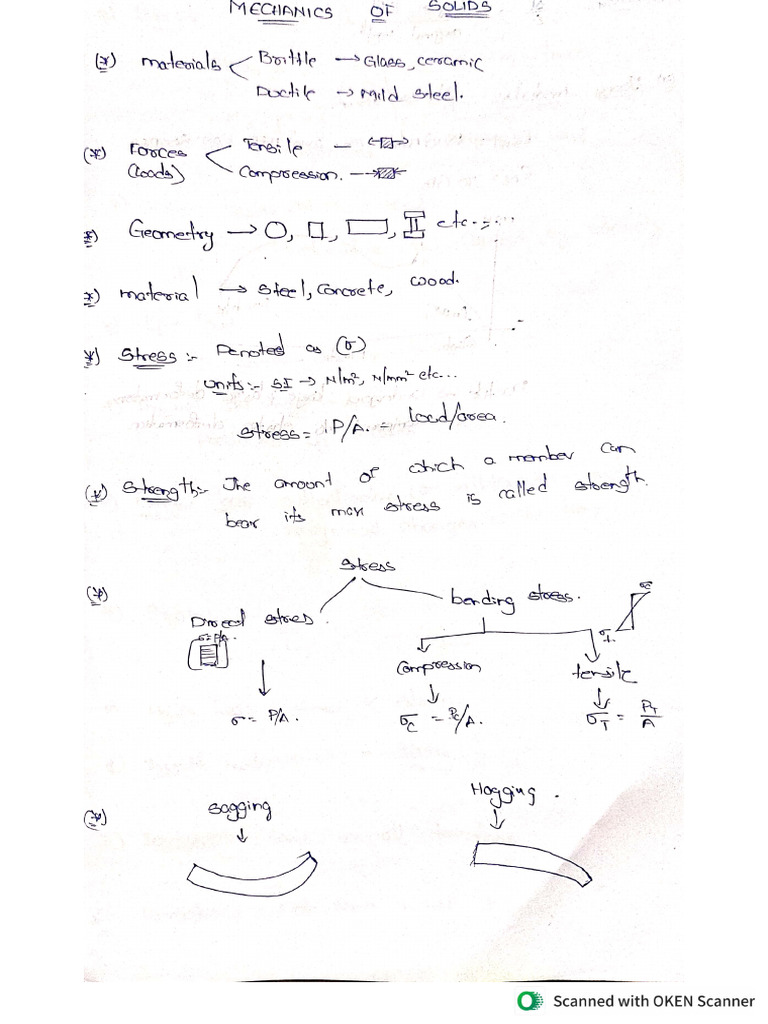 MECHANICS OF SOLIDS
(*) materials < Brittle → Glass, ceramic
Ductile → Mild steel.
(*) Forces (loads) < Tensile —
Compression. —
*) Geometry → etc.....
*) material → steel, concrete, wood.
*) Stress :- Denoted as (σ)
Units :- SI → N/m², N/mm² etc...
stress = P/A. = load/area.
(*) Strength:- The amount of which a member can
bear its max stress is called strength.
(*) stress
Direct stres.
bending stress.
σc
σt
σ=P/A.
Compression
tensile
σ = P/A.
σC = Pc/A.
σT = PT/A
(*) sagging
Hogging .
Scanned with OKEN Scanner